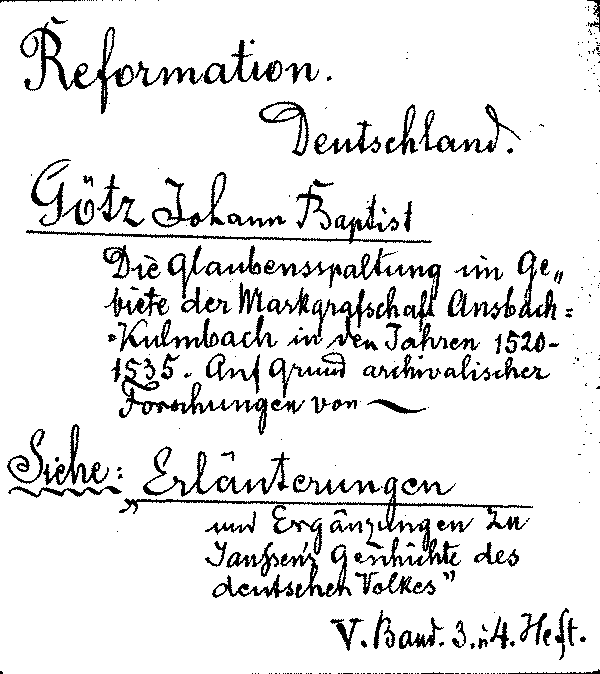 Reformation.
Deutschland.
Götz Johann Baptist
Die Glaubensspaltung im Ge„
biete der Markgrafschaft Ansbach=
=Kulmbach in den Jahren 1520-
1535. Auf Grund archivalischer
Forschungen von —
Siehe: „Erläuterungen
und Ergänzungen zu
Janssens Geschichte des
deutschen Volkes"
V. Band. 3. u 4. Heft.